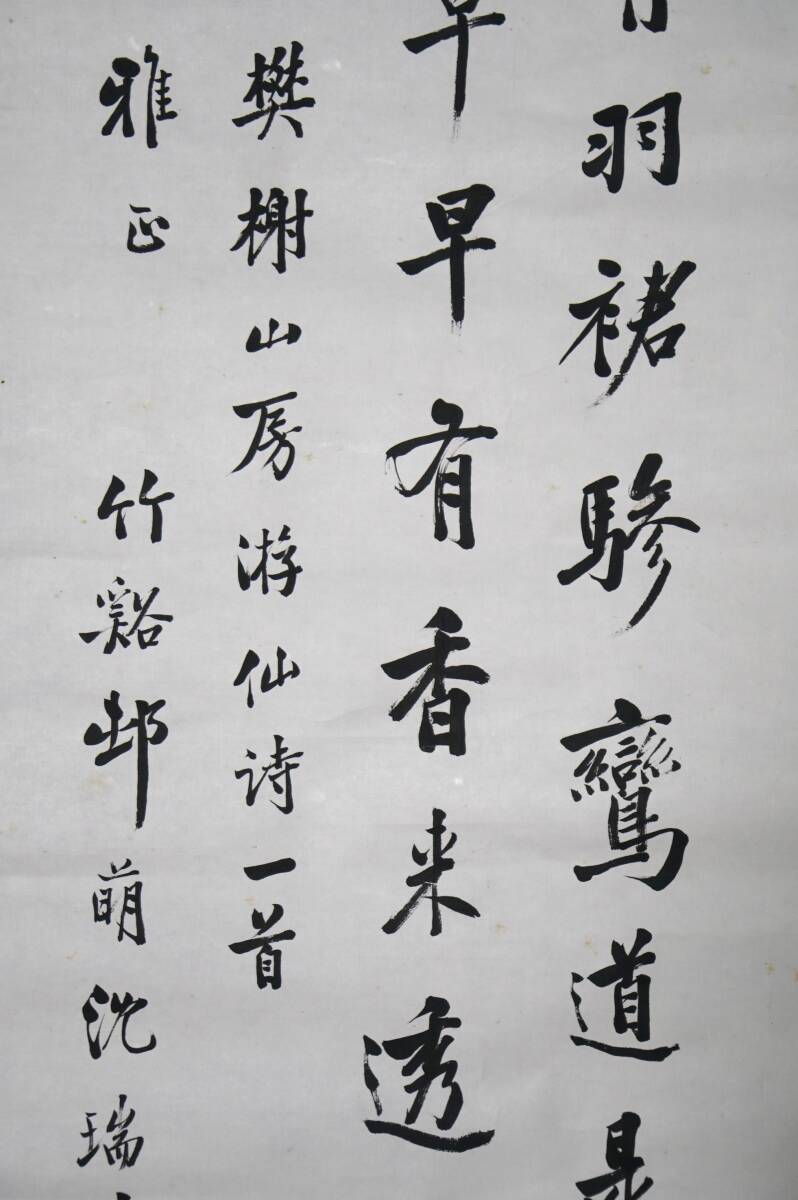 羽裙驂鸞道是
早早有香来透
樊榭山房游仙诗一首
雅正 竹谿邨萌沈瑞